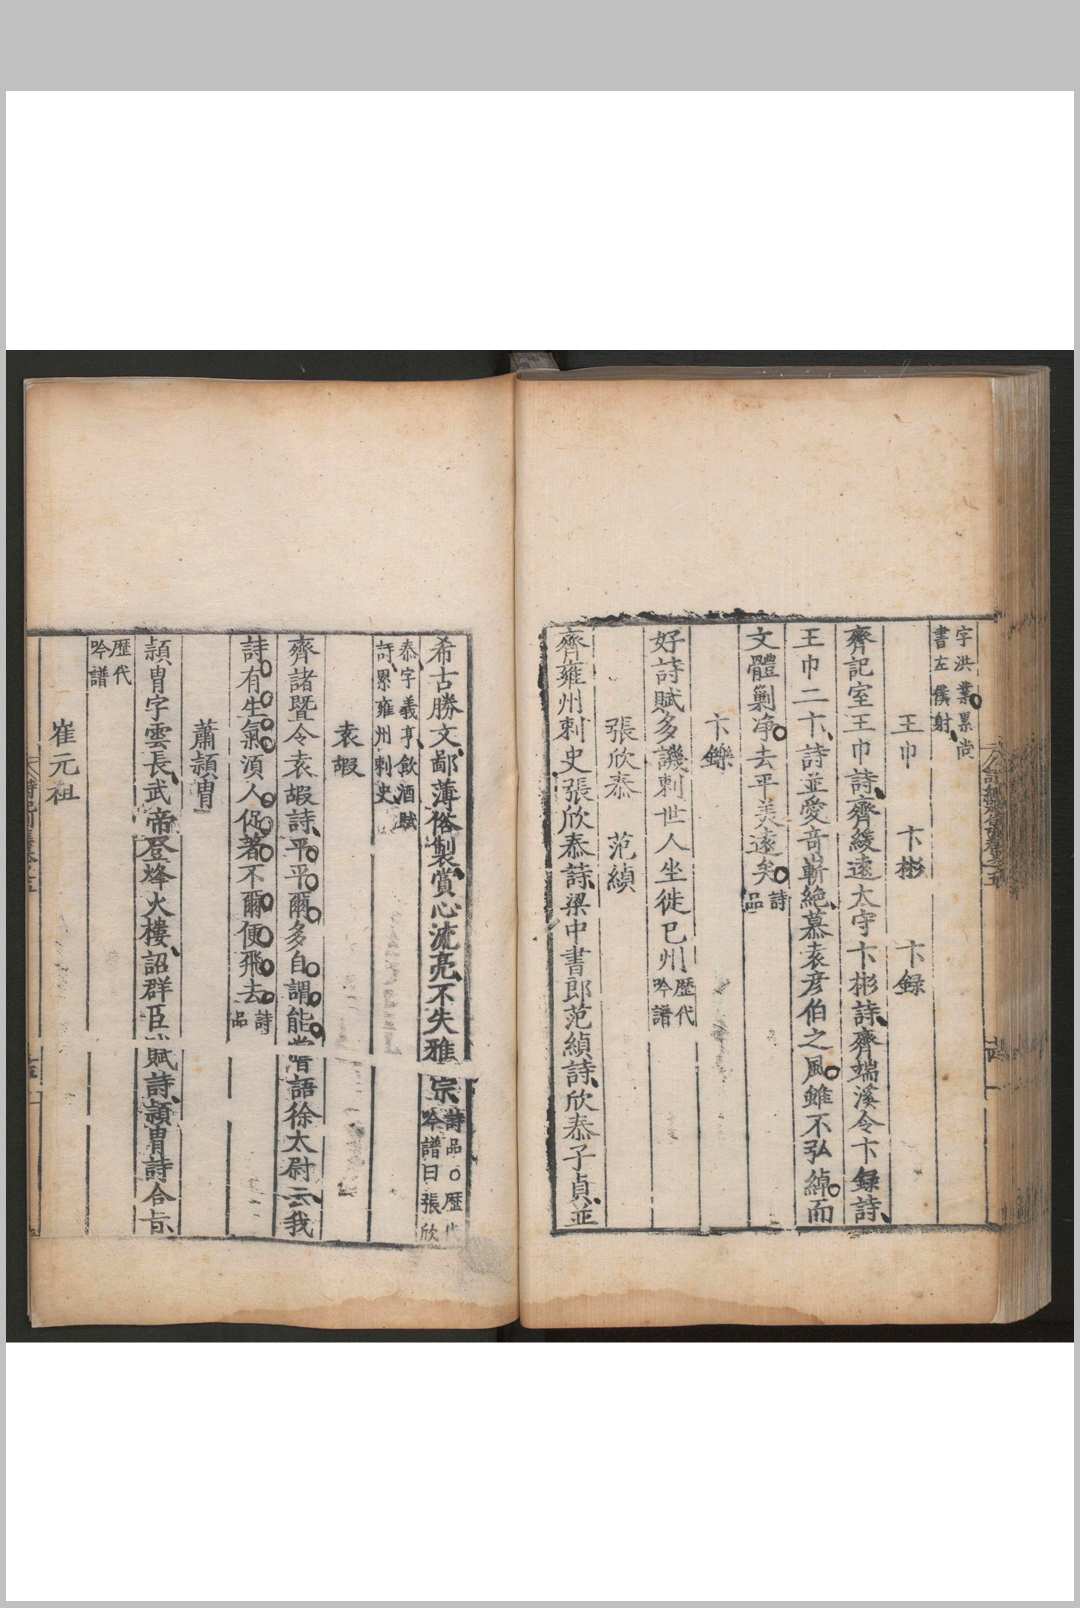 字洪業累尚
書左僕射
王巾　卞彬　卞録
齊記室王巾詩齊綏遠太守卞彬詩齊端溪令卞録詩
王巾二卞詩並愛竒嶄絶慕袁彦伯之風雖不弘綽而
文體勦净去平美遠矣詩品
卞鑠
好詩賦多譏刺世人坐徙巴州歴代吟譜
張欣泰　范縝
齊雍州刺史張欣泰詩梁中書郎范縝詩欣泰子貞並
希古勝文鄙薄俗製賞心流亮不失雅宗詩品○歴代吟譜曰張欣
泰字義亨飲酒賦
詩累雍州刺史
袁嘏
齊諸暨令袁嘏詩平平爾多自謂能嘗語徐太尉云我
詩有生氣湏人促著不爾便飛去詩品
蕭頴胄
頴胄字雲長武帝登烽火樓詔群臣賦詩頴胄詩合旨
歴代吟譜
崔元祖